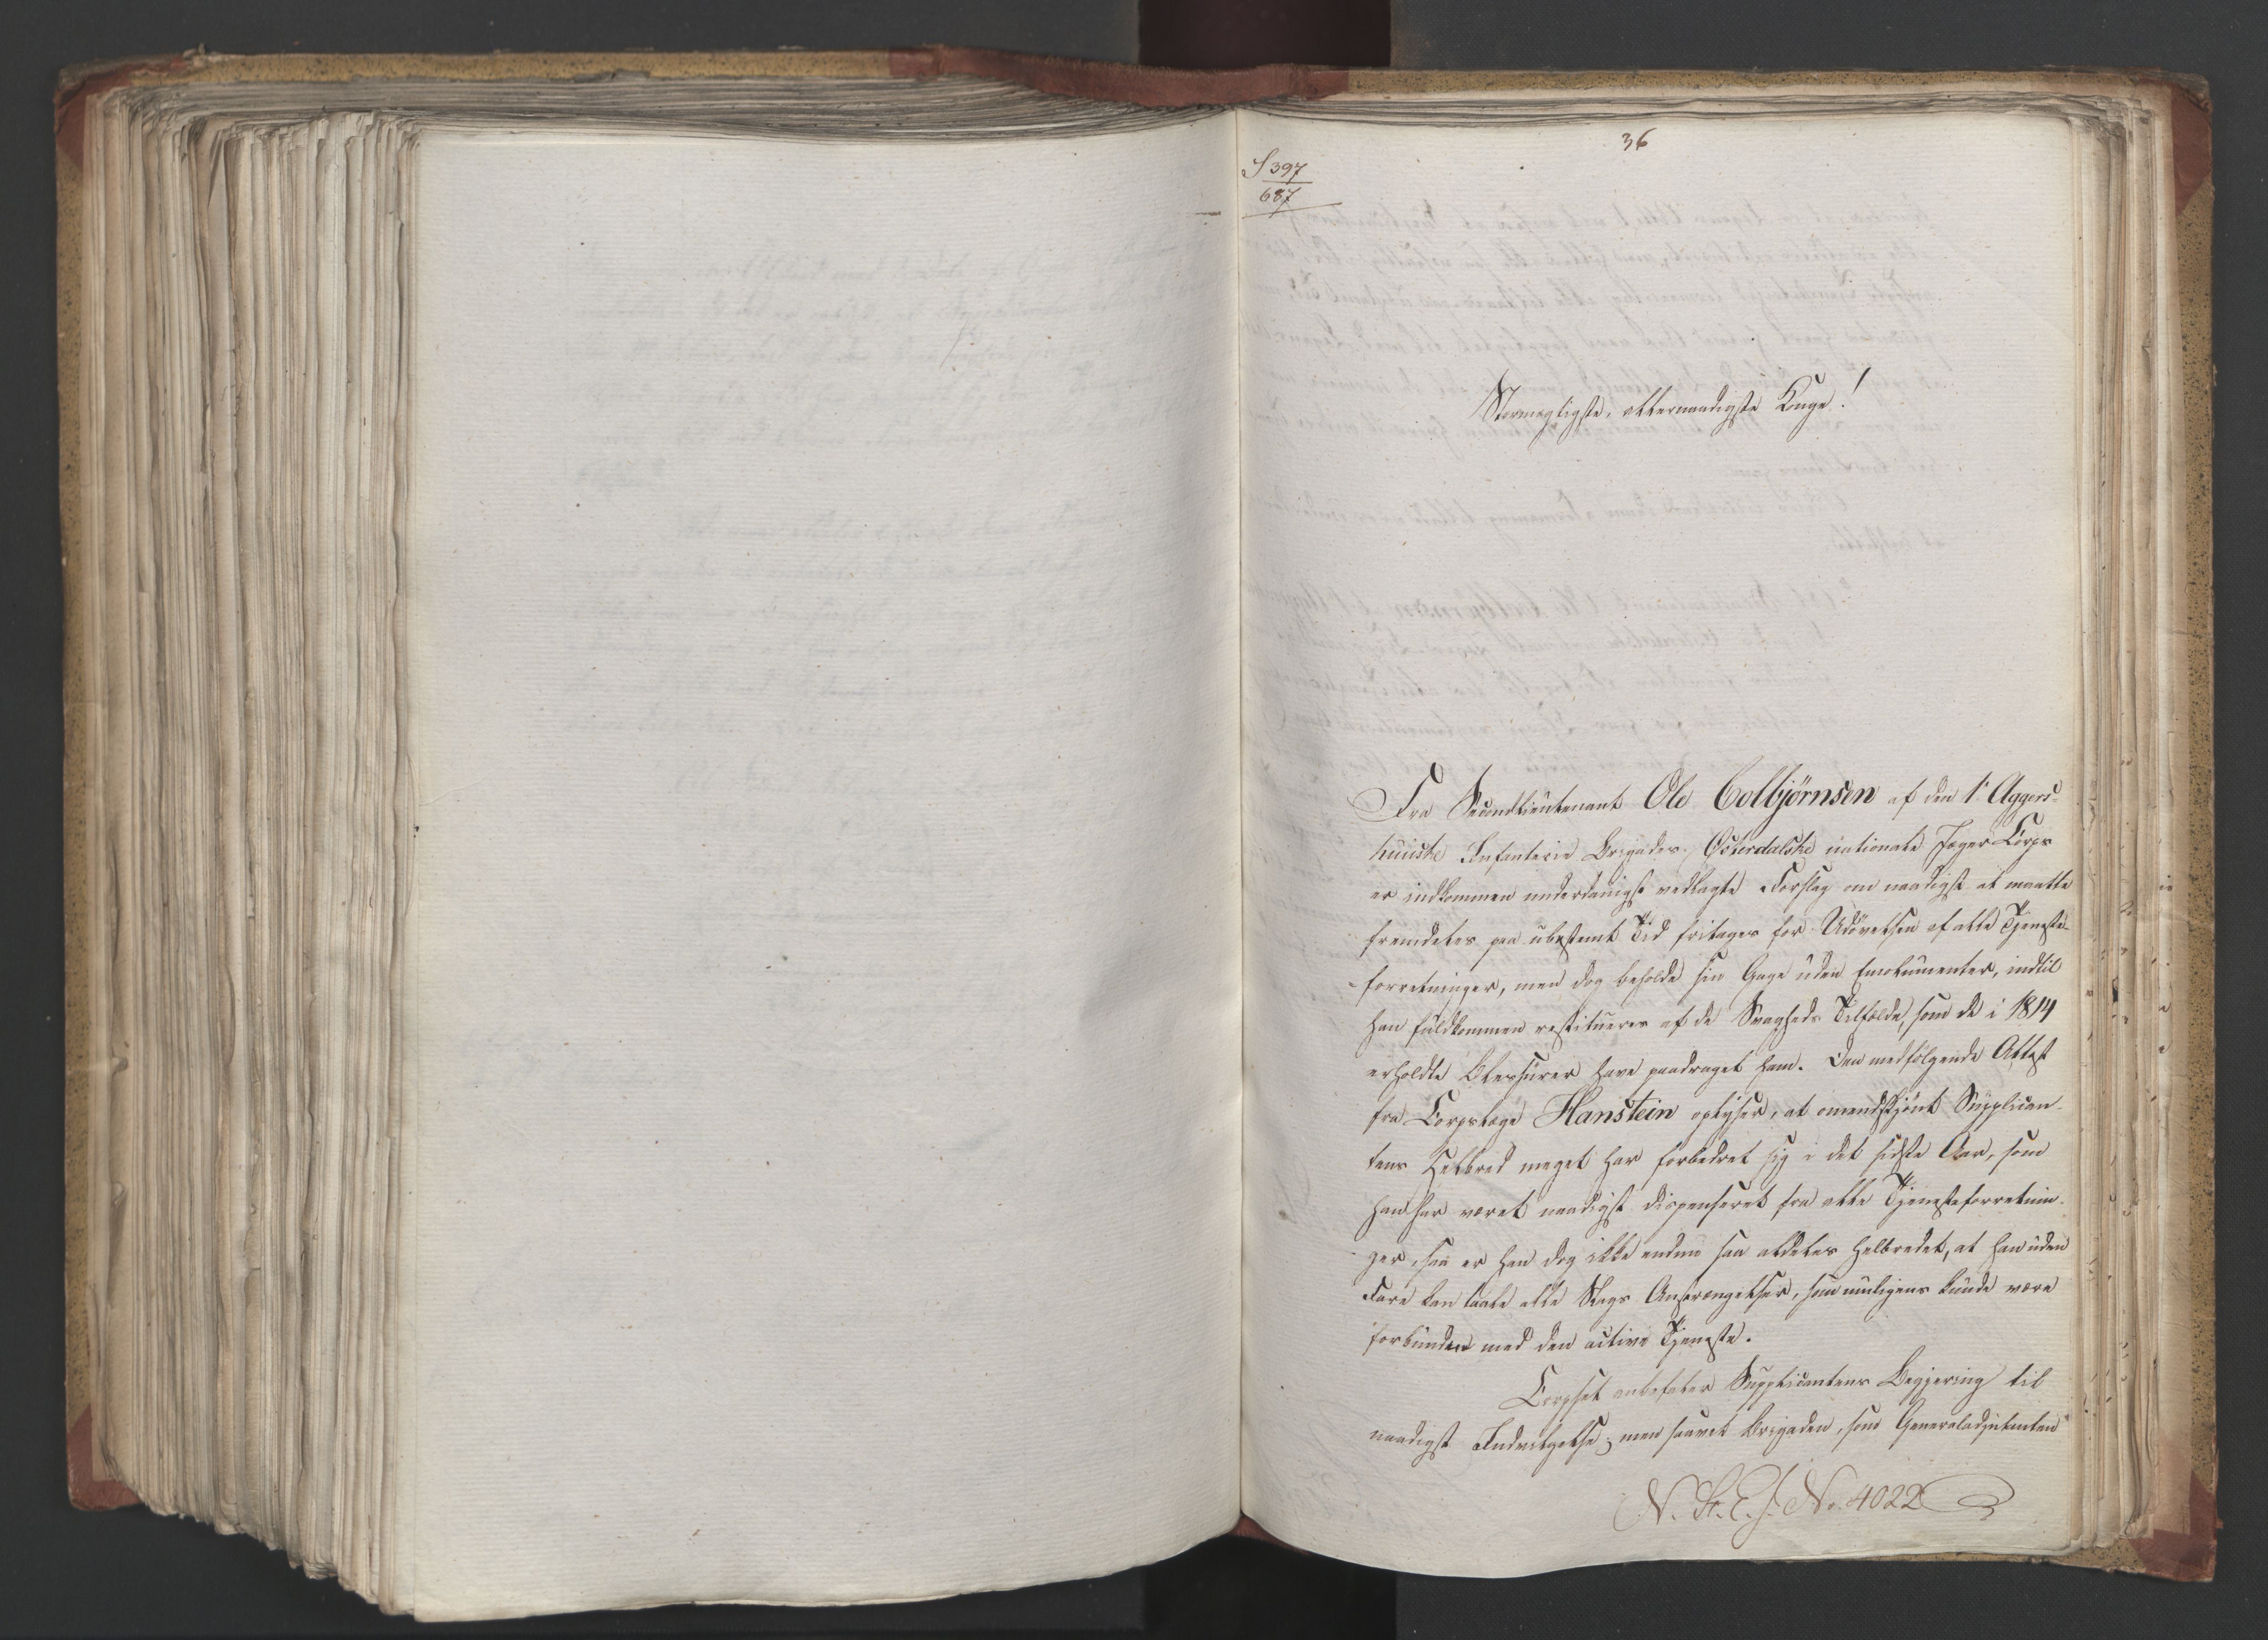 36
S 397
687
Stormægtigste, allernaadigste Konge!
Fra Secondlieutenant Ole Colbjørnsen af den 1e Aggers-
huusske Infanterie Brigades Østerdalske nationale Jæger Corps
er indkommen underdanigst vedlagte Forslag om naadigst at maatte
fremdeles paa ubestemt Tid fritages for Udøvelsen af alle Tjeneste-
forretninger, men dog beholde sin Gage uden Emolumenter, indtil
han fuldkommen restitueres af de Svagheds Tilfælde, som de i 1814
erholdte Blessurer have paadraget ham. Den medfølgende Attest
fra Corpslæge Hanstein oplyser, at omendskjønt Supplican-
tens Helbred meget har forbedret sig i det sidste Aar, som
han har været naadigst dispenseret fra alle Tjenesteforretnin-
ger, saa er han dog ikke endnu saa aldeles helbredet, at han uden
Fare kan taale alle Slags Anstrængelser, som muligens kunde være
forbunden med den active Tjeneste.
Corpset anbefaler Supplicantens Begjering til
naadigst Indvilgelse; men saavel Brigaden, som Generaladjutanten
N. St. E. J. No. 4022